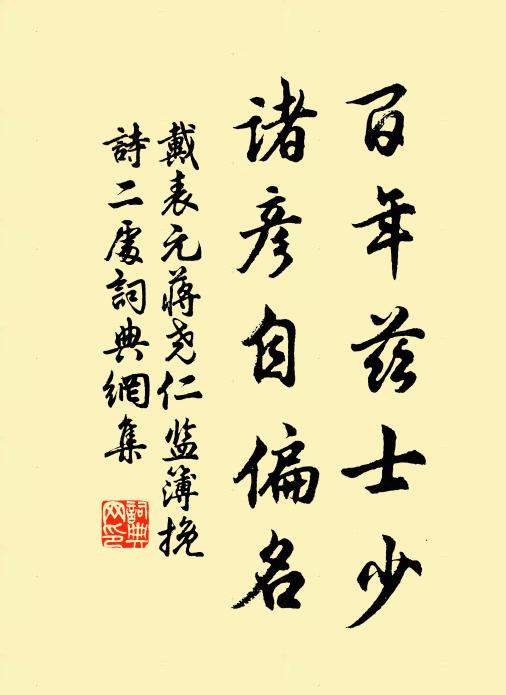 百年兹士少
诸彦自偏名
戴表元蒋尧仁监簿挽
詩二處詞典網集
詞典网印